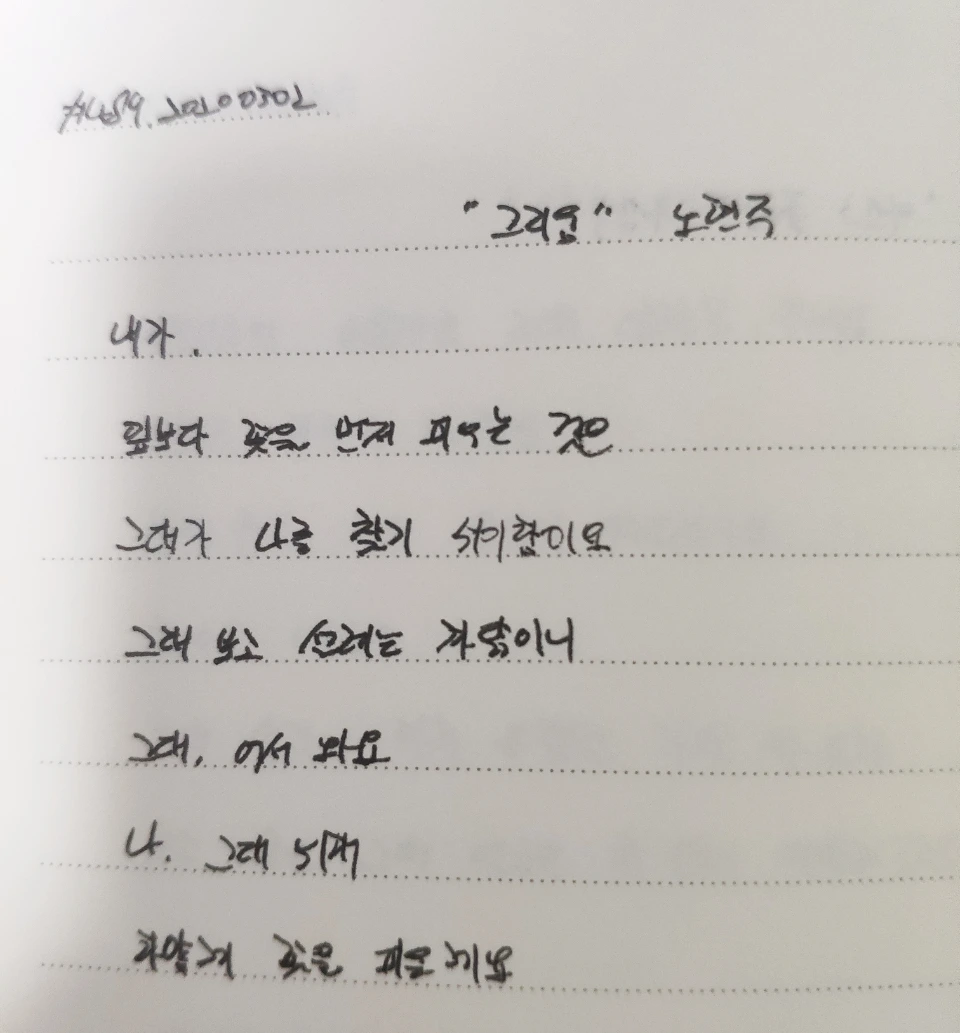 20200302
"그리움" 노현숙
내가.
잎보다 꽃을 먼저 피우는 것은
그대가 나를 찾기 쉬이함이요
그대 보고 바람이니
그대, 어서 와요
나. 그대 위해
하얗게 꽃을 피울게요